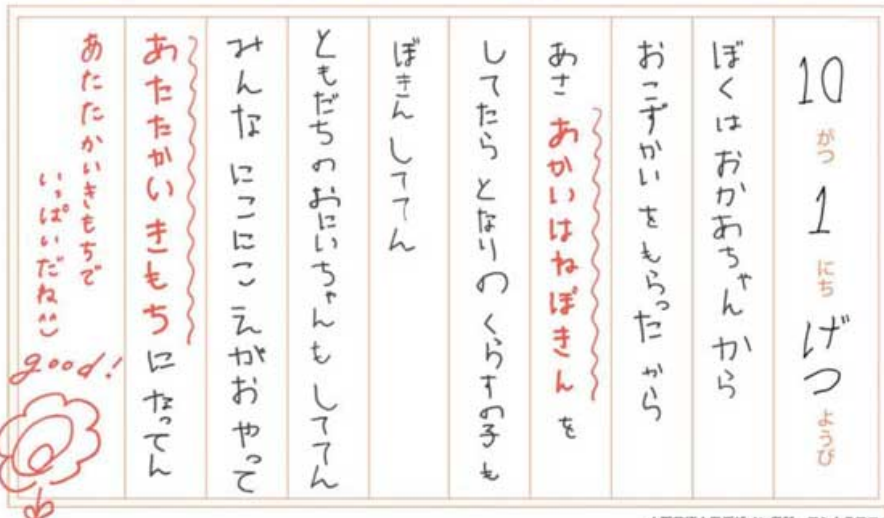 10がつ1にちげつようび
ぼくはおかあちゃんから
おこずかいをもらったから
あさ あかいはねぼきんを
してたら となりのくらすの子も
ぼきん しててん
ともだちのおにいちゃんも しててん
みんな にこにこ えがおやって
あたたかい きもちに なってん
あたたかいきもちで
いっぱいだね^^
good!